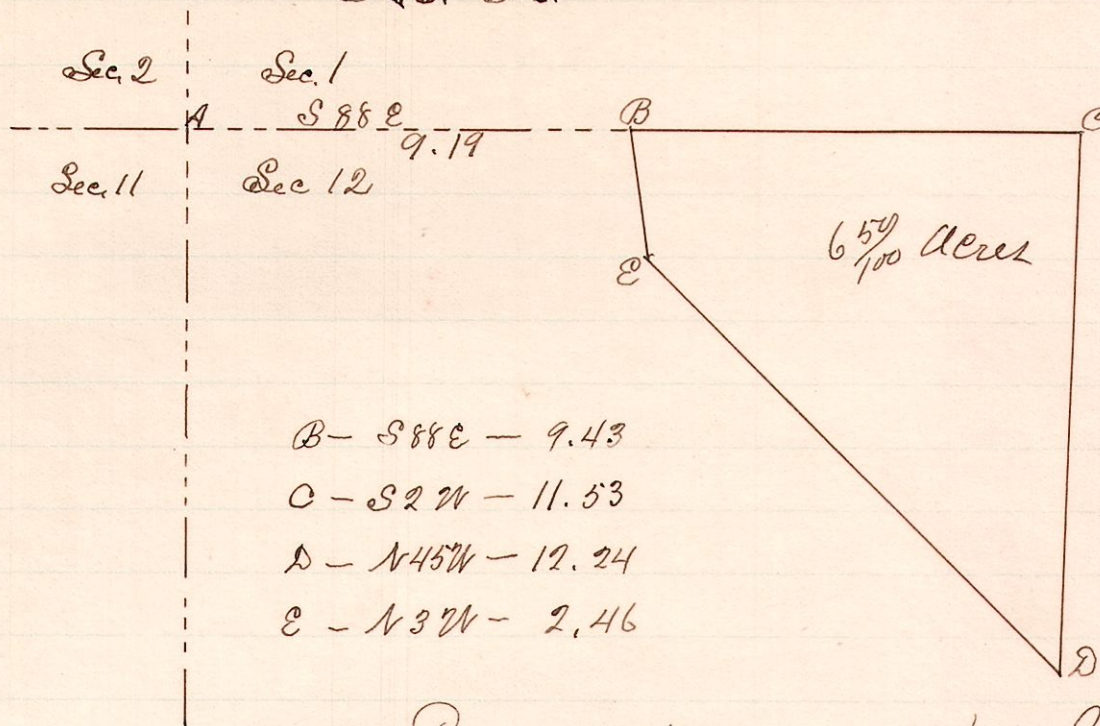 Sec. 2
Sec. 1
A
S 88 E
9.19
B
C
Sec. 11
Sec 12
6 50/100 Acres
E
B – S 88 E – 9.43
C – S 2 W – 11.53
D – N 45 W – 12.24
E – N 3 W – 2.46
D